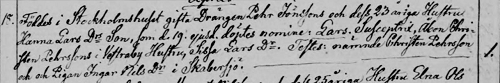 15. Föddes i Stockholmshuset gifta Drängen Pehr Jönssons och dess 23 åriga Hustru
Hanna Lars Dr Son, som d. 19 ejusd. döptes nomine: Lars. Susceptrix, Åbon Chri-
sten Pehrssons i Hustru, Sissa Lars Dr. Testes: nämnde Christen Pehrsson
och Pigan Ingar Nils Dr i Skabersjö. 1.
åriga Hustru Elna